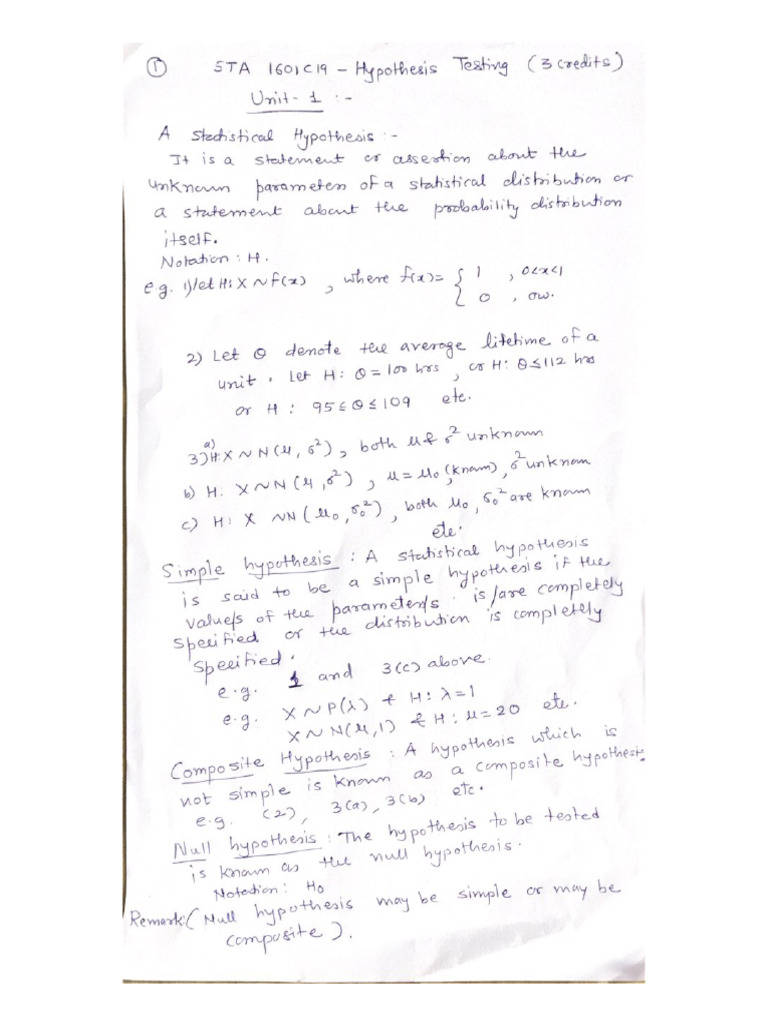 ① STA 1601C19 - Hypothesis Testing (3 credits)
Unit-1 :-
A Statistical Hypothesis :-
It is a statement or assertion about the
unknown parameters of a statistical distribution or
a statement about the probability distribution
itself.
Notation : H.
e.g. 1) let H: X ~ f(x) , where f(x) = { 1 , 0<x<1
0 , ow.
2) Let θ denote the average lifetime of a
unit. Let H: θ = 100 hrs , or H: θ ≤ 112 hrs
or H : 95 ≤ θ ≤ 109 etc.
3) a) H: X ~ N(μ, σ²), both μ & σ² unknown
b) H: X ~ N(μ, σ²) , μ = μ₀ (known), σ² unknown
c) H: X ~ N(μ₀, σ₀²) , both μ₀, σ₀² are known
etc.
Simple hypothesis : A statistical hypothesis
is said to be a simple hypothesis if the
value/s of the parameter/s is/are completely
specified or the distribution is completely
specified.
e.g. 1 and 3(c) above.
e.g. X ~ P(λ) & H: λ=1
X ~ N(μ,1) & H: μ=20 etc.
Composite Hypothesis : A hypothesis which is
not simple is known as a composite hypothesis
e.g. (2), 3(a), 3(b) etc.
Null hypothesis : The hypothesis to be tested
is known as the null hypothesis.
Notation : H₀
Remark: (Null hypothesis may be simple or may be
composite).